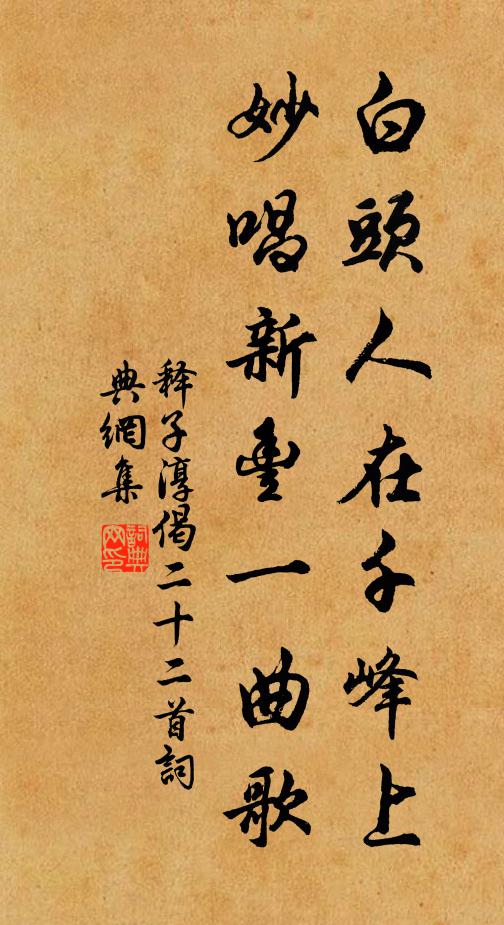 白頭人在千峰上
妙唱新豐一曲歌
释子淳偈二十二首詞
典網集
詞典
网印